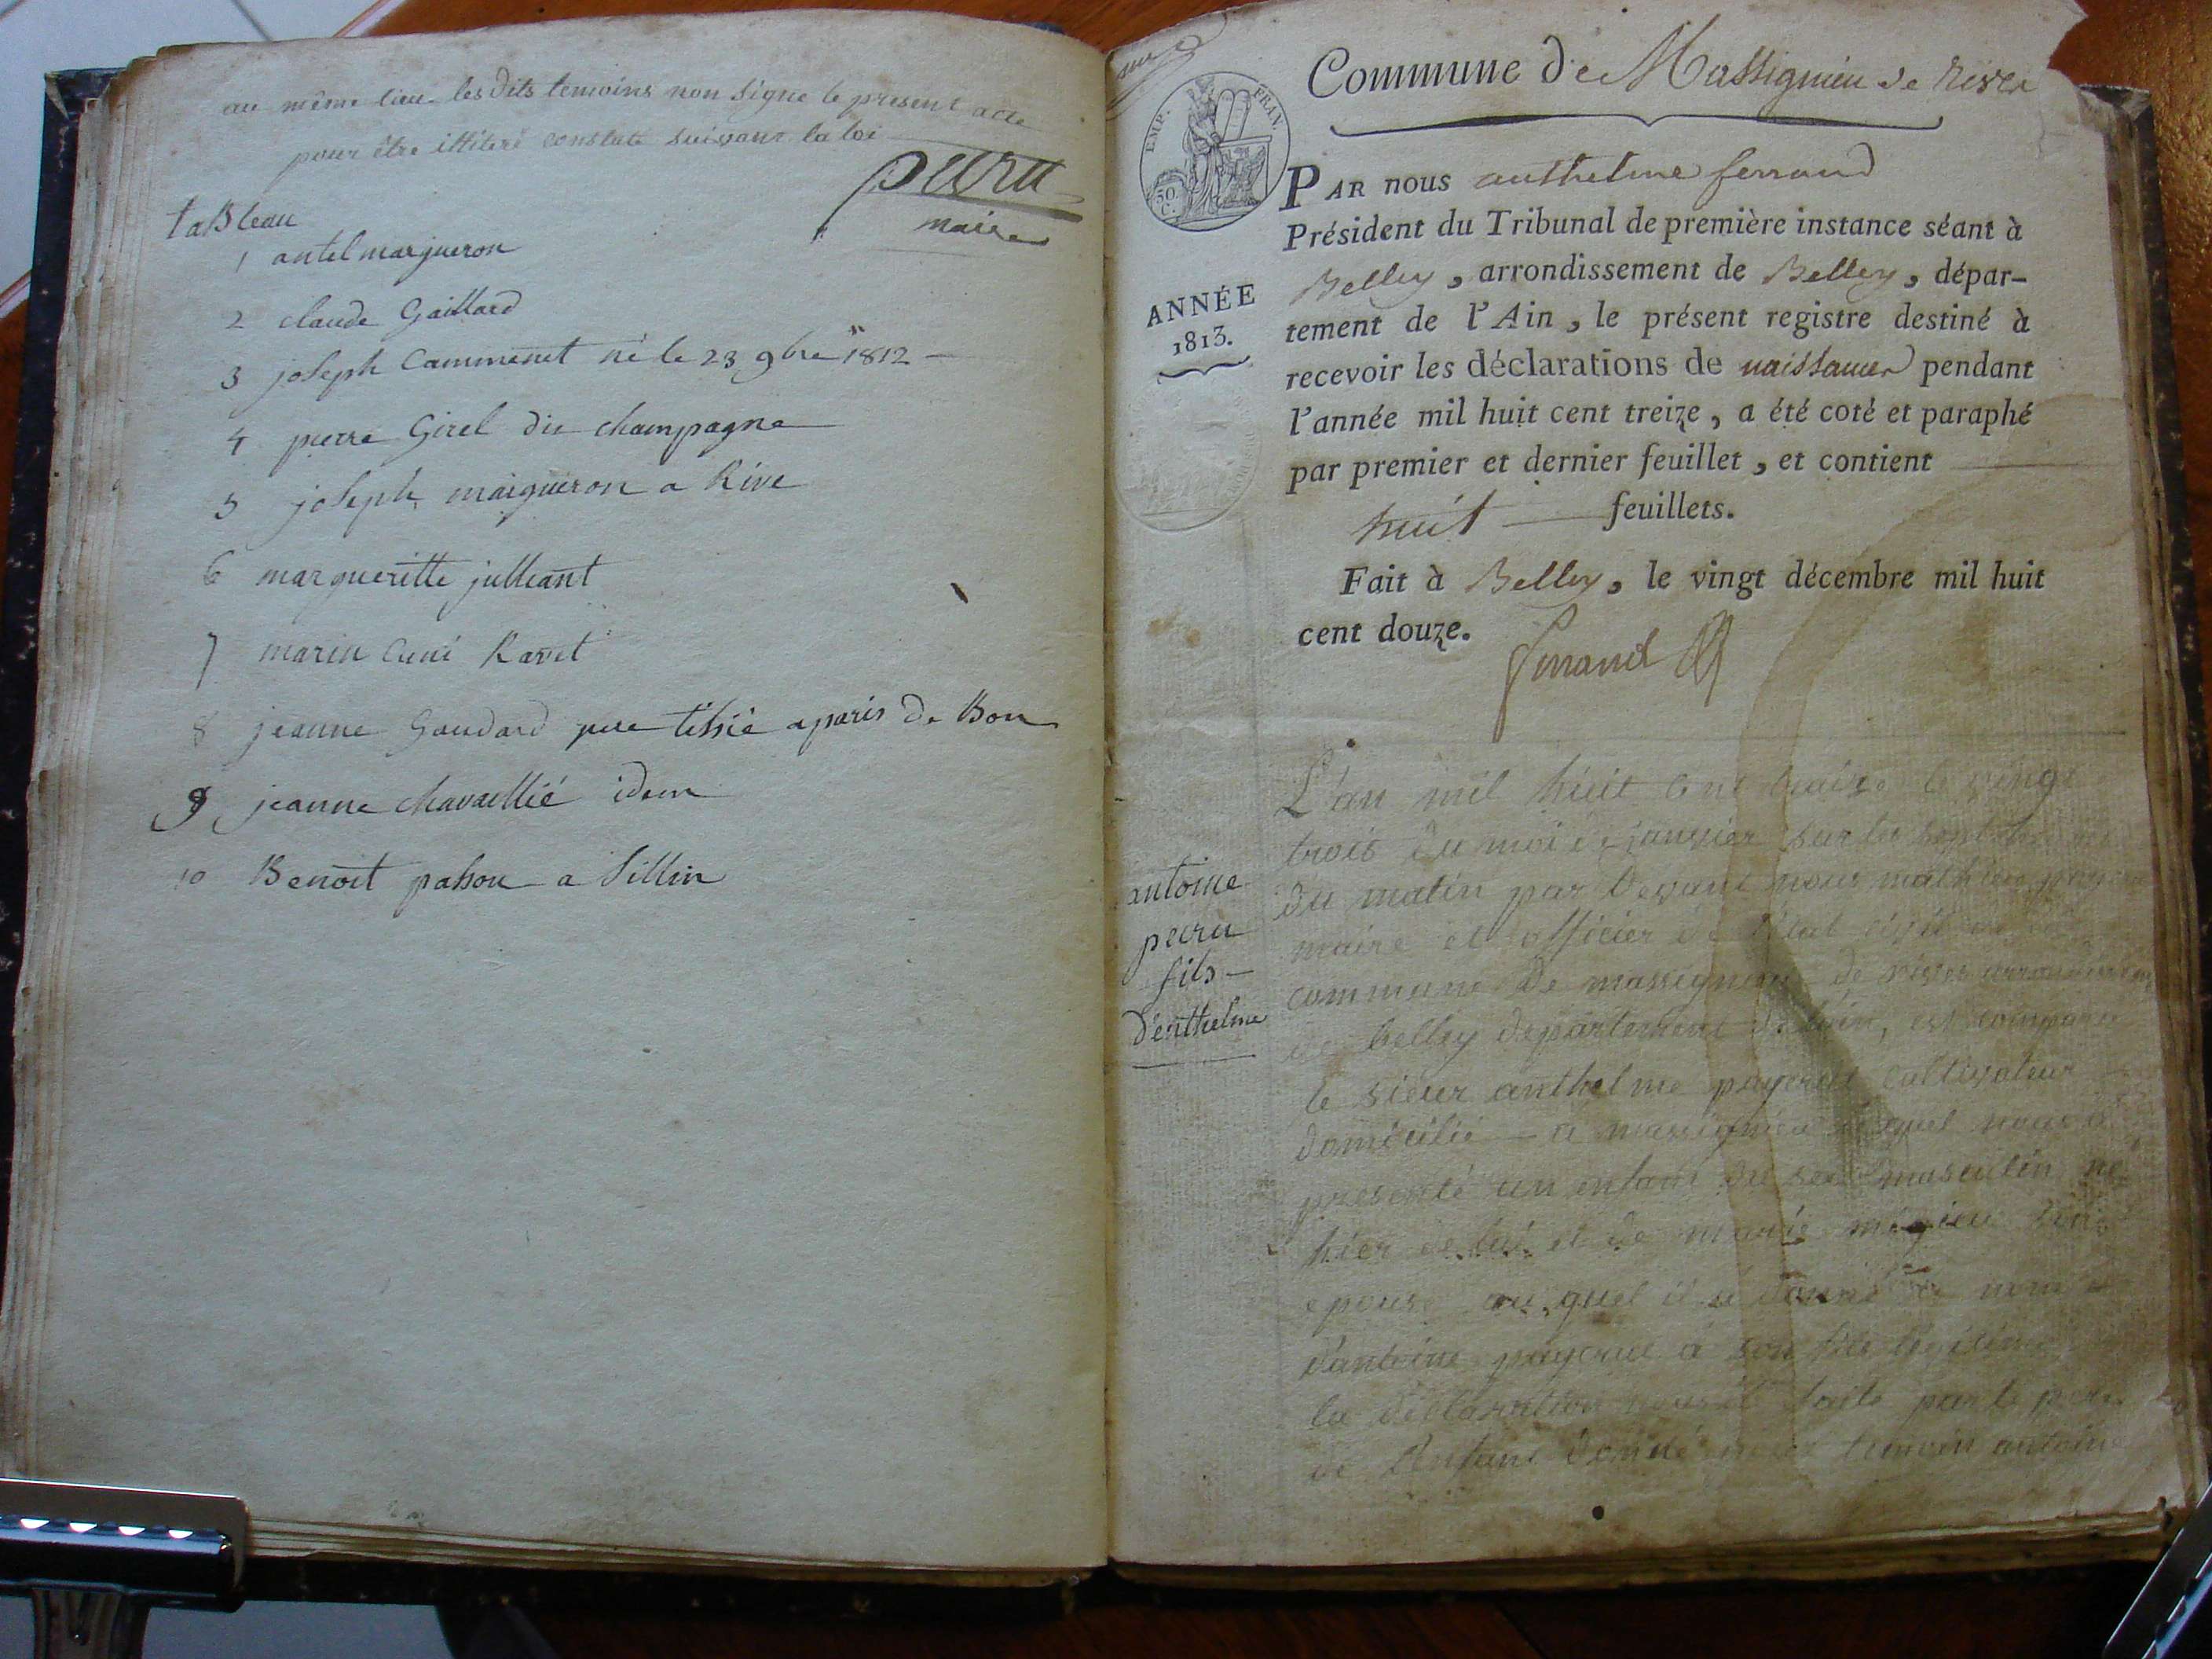 au même lieu les dits temoins non signe le present acte
pour être illiteré constaté suivant la loi
maire
taBleau
1 antel margueron
2 claude Gaillard
3 joseph Cammenet né le 23 9bre 1812
4 pierre Girel du champagne
5 joseph margueron a Rive
6 margueritte julleant
7 marin Cuné Ravet
8 jeanne Goudard aparis de Bon
9 jeanne chavaellié idem
10 Benoit passon a Sillin
Commune de Massignieu de rives
EMP. FRAN.
50 C.
PAR nous anthelme ferrand
Président du Tribunal de première instance séant à
Belley, arrondissement de Belley, dépar-
tement de l'Ain, le présent registre destiné à
recevoir les déclarations de naissances pendant
l'année mil huit cent treize, a été coté et paraphé
par premier et dernier feuillet, et contient
huit feuillets.
Fait à Belley, le vingt décembre mil huit
cent douze.
Ferrand
ANNÉE
1813.
antoine
fils
d'enthelme
L'an mil huit cent traize le vingt
trois du moi de janvier sur les
du matin par devant nous mathieu
maire et officier de l'état civil
commune de massignieu de rives arrondissement
de belley departement de l'ain, est comparu
le sieur anthelme payerne cultivateur
domicilié a massignieu lequel nous a
presenté un enfant du sexe masculin né
hier de lui et de marie
epouse au quel il a donné le nom
d'antoine a son fils legitime
la déclaration faite par le père
de l'enfant temoin antoine